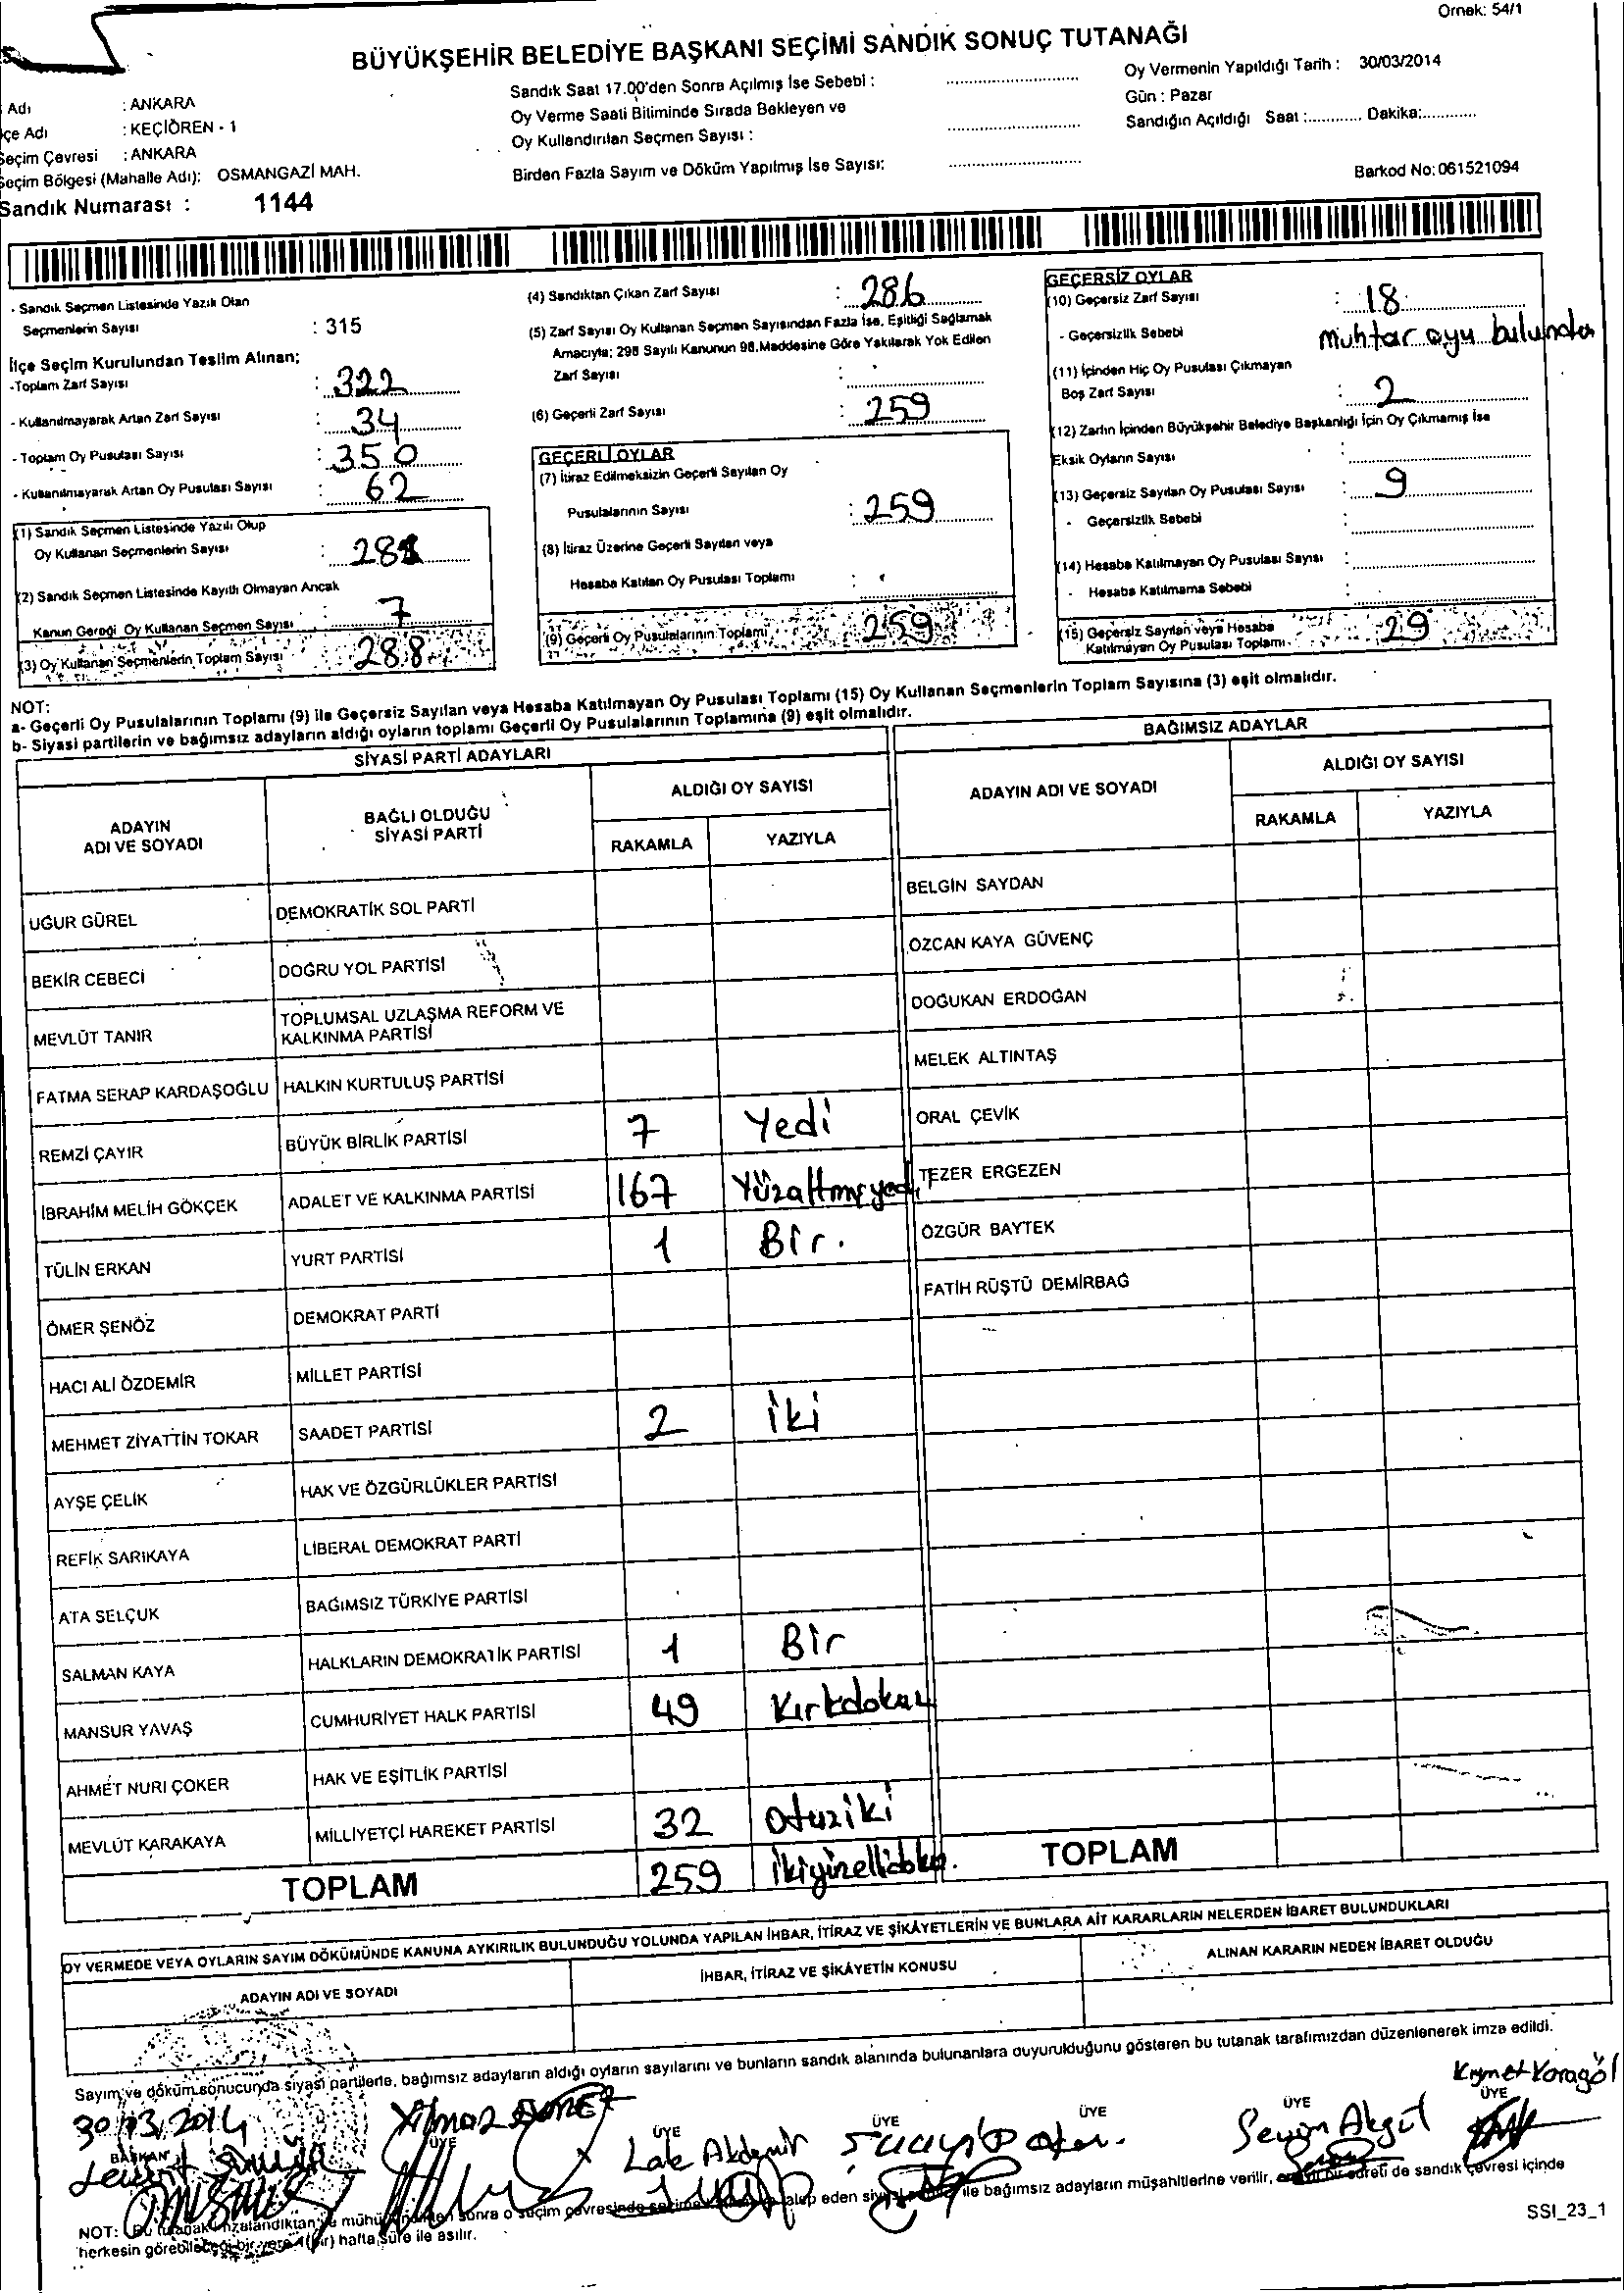 Ornek: 54/1
BÜYÜKŞEHİR BELEDİYE BAŞKANI SEÇİMİ SANDIK SONUÇ TUTANAĞI
Adı : ANKARA
çe Adı : KEÇİÖREN - 1
Seçim Çevresi : ANKARA
Seçim Bölgesi (Mahalle Adı): OSMANGAZİ MAH.
Sandık Numarası : 1144
Sandık Saat 17.00'den Sonra Açılmış İse Sebebi :
Oy Verme Saati Bitiminde Sırada Bekleyen ve
Oy Kullandırılan Seçmen Sayısı :
Birden Fazla Sayım ve Döküm Yapılmış İse Sayısı:
Oy Vermenin Yapıldığı Tarih : 30/03/2014
Gün : Pazar
Sandığın Açıldığı Saat :............ Dakika:............
Barkod No: 061521094
- Sandık Seçmen Listesinde Yazılı Olan
Seçmenlerin Sayısı : 315
İlçe Seçim Kurulundan Teslim Alınan;
-Toplam Zarf Sayısı : 322
- Kullanılmayarak Artan Zarf Sayısı : 34
- Toplam Oy Pusulası Sayısı : 350
- Kullanılmayarak Artan Oy Pusulası Sayısı : 62
(1) Sandık Seçmen Listesinde Yazılı Olup
Oy Kullanan Seçmenlerin Sayısı : 281
(2) Sandık Seçmen Listesinde Kayıtlı Olmayan Ancak
Kanun Gereği Oy Kullanan Seçmen Sayısı : 7
(3) Oy Kullanan Seçmenlerin Toplam Sayısı : 288
(4) Sandıktan Çıkan Zarf Sayısı : 286
(5) Zarf Sayısı Oy Kullanan Seçmen Sayısından Fazla İse, Eşitliği Sağlamak
Amacıyla; 298 Sayılı Kanunun 98.Maddesine Göre Yakılarak Yok Edilen
Zarf Sayısı :
(6) Geçerli Zarf Sayısı : 259
GEÇERLİ OYLAR
(7) İtiraz Edilmeksizin Geçerli Sayılan Oy
Pusulalarının Sayısı : 259
(8) İtiraz Üzerine Geçerli Sayılan veya
Hesaba Katılan Oy Pusulası Toplamı :
(9) Geçerli Oy Pusulalarının Toplamı : 259
GEÇERSİZ OYLAR
(10) Geçersiz Zarf Sayısı : 18
- Geçersizlik Sebebi muhtar oyu bulundu
(11) İçinden Hiç Oy Pusulası Çıkmayan
Boş Zarf Sayısı : 2
(12) Zarfın İçinden Büyükşehir Belediye Başkanlığı İçin Oy Çıkmamış İse
Eksik Oyların Sayısı :
(13) Geçersiz Sayılan Oy Pusulası Sayısı : 9
- Geçersizlik Sebebi :
(14) Hesaba Katılmayan Oy Pusulası Sayısı :
- Hesaba Katılmama Sebebi :
(15) Geçersiz Sayılan veya Hesaba
Katılmayan Oy Pusulası Toplamı : 29
NOT:
a- Geçerli Oy Pusulalarının Toplamı (9) ile Geçersiz Sayılan veya Hesaba Katılmayan Oy Pusulası Toplamı (15) Oy Kullanan Seçmenlerin Toplam Sayısına (3) eşit olmalıdır.
b- Siyasi partilerin ve bağımsız adayların aldığı oyların toplamı Geçerli Oy Pusulalarının Toplamına (9) eşit olmalıdır.
SİYASİ PARTİ ADAYLARI
ADAYIN ADI VE SOYADI
BAĞLI OLDUĞU SİYASİ PARTİ
ALDIĞI OY SAYISI
RAKAMLA YAZIYLA
UĞUR GÜREL DEMOKRATİK SOL PARTİ
BEKİR CEBECİ DOĞRU YOL PARTİSİ
MEVLÜT TANIR TOPLUMSAL UZLAŞMA REFORM VE KALKINMA PARTİSİ
FATMA SERAP KARDAŞOĞLU HALKIN KURTULUŞ PARTİSİ
REMZİ ÇAYIR BÜYÜK BİRLİK PARTİSİ 7 Yedi
İBRAHİM MELİH GÖKÇEK ADALET VE KALKINMA PARTİSİ 167 Yüzaltmışyedi
TÜLİN ERKAN YURT PARTİSİ 1 Bir.
ÖMER ŞENÖZ DEMOKRAT PARTİ
HACI ALİ ÖZDEMİR MİLLET PARTİSİ
MEHMET ZİYATTİN TOKAR SAADET PARTİSİ 2 iki
AYŞE ÇELİK HAK VE ÖZGÜRLÜKLER PARTİSİ
REFİK SARIKAYA LİBERAL DEMOKRAT PARTİ
ATA SELÇUK BAĞIMSIZ TÜRKİYE PARTİSİ
SALMAN KAYA HALKLARIN DEMOKRATİK PARTİSİ 1 Bir
MANSUR YAVAŞ CUMHURİYET HALK PARTİSİ 49 Kırkdokuz
AHMET NURİ ÇOKER HAK VE EŞİTLİK PARTİSİ
MEVLÜT KARAKAYA MİLLİYETÇİ HAREKET PARTİSİ 32 Otuziki
TOPLAM 259 ikiyüzellidoku.
BAĞIMSIZ ADAYLAR
ADAYIN ADI VE SOYADI
ALDIĞI OY SAYISI
RAKAMLA YAZIYLA
BELGİN SAYDAN
OZCAN KAYA GÜVENÇ
DOĞUKAN ERDOĞAN
MELEK ALTINTAŞ
ORAL ÇEVİK
TEZER ERGEZEN
OZGÜR BAYTEK
FATİH RÜŞTÜ DEMİRBAĞ
TOPLAM
OY VERMEDE VEYA OYLARIN SAYIM DÖKÜMÜNDE KANUNA AYKIRILIK BULUNDUĞU YOLUNDA YAPILAN İHBAR, İTİRAZ VE ŞİKÂYETLERİN VE BUNLARA AİT KARARLARIN NELERDEN İBARET BULUNDUKLARI
ADAYIN ADI VE SOYADI
İHBAR, İTİRAZ VE ŞİKÂYETİN KONUSU
ALINAN KARARIN NEDEN İBARET OLDUĞU
Sayım ve döküm sonucunda siyasi partilerle, bağımsız adayların aldığı oyların sayılarını ve bunların sandık alanında bulunanlara duyurulduğunu gösteren bu tutanak tarafımızdan düzenlenerek imza edildi.
30/03/2014
BAŞKAN Levent
Yılmaz ÜYE
ÜYE Lale Akdemir
ÜYE
ÜYE
ÜYE Sevgin Akgül
Kıymet Karagöl ÜYE
NOT: Bu tutanak imzalandıktan ve mühürlendikten sonra o seçim çevresinde seçime talep eden siyasi ile bağımsız adayların müşahitlerine verilir, bir sureti de sandık çevresi içinde
herkesin görebileceği bir yere 1(bir) hafta süre ile asılır.
SSI_23_1